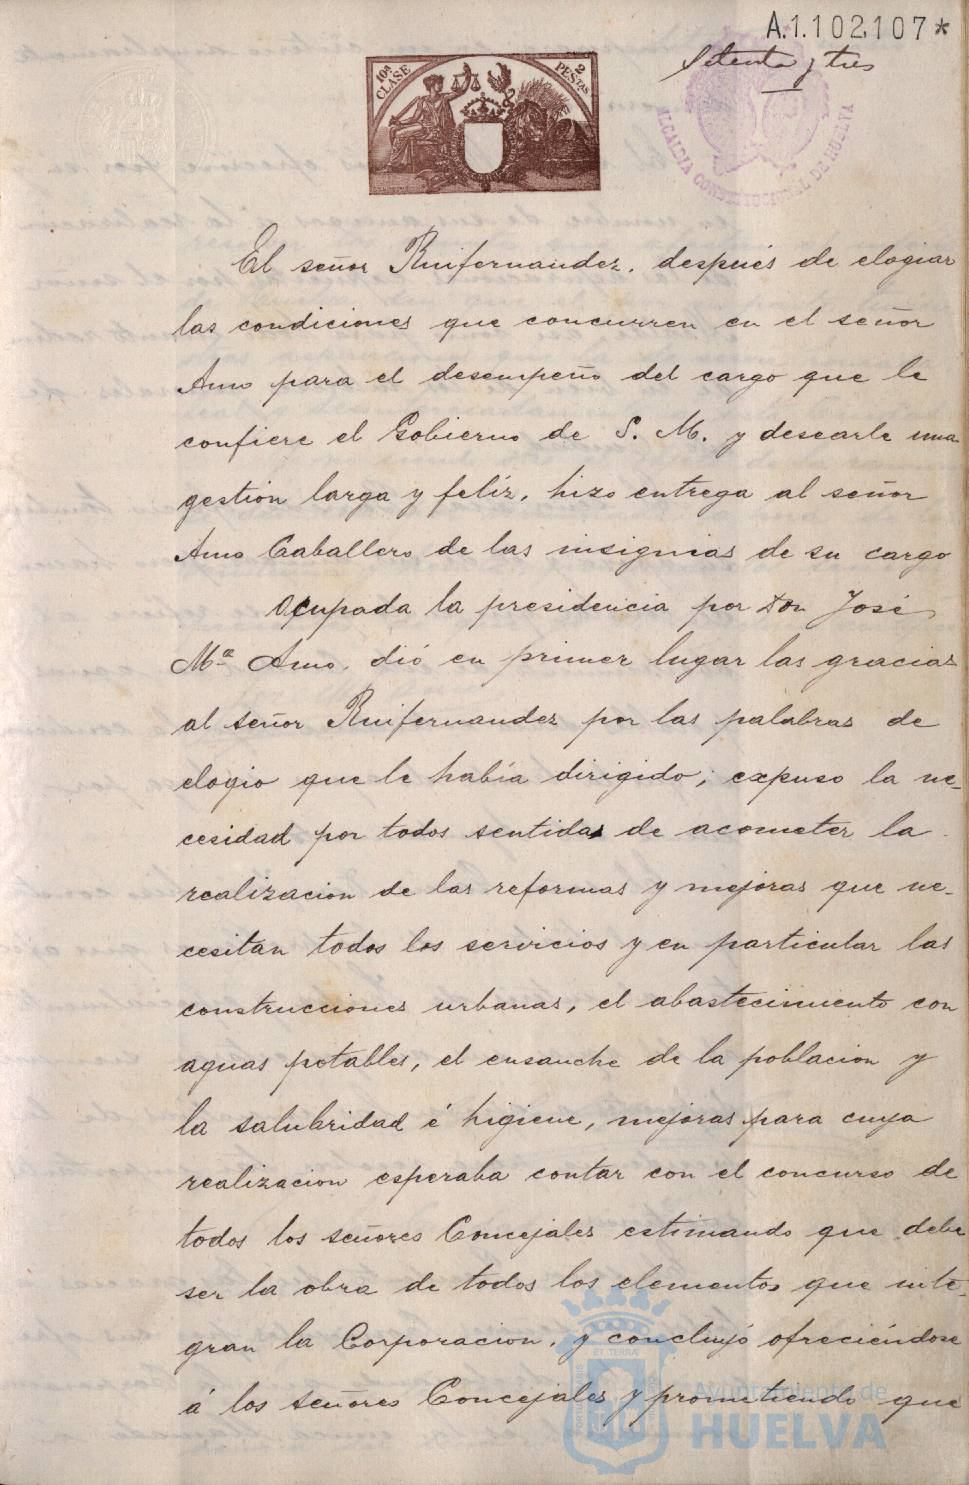 A.1.102,107*
Setenta y tres
10ª CLASE
2 PESTAS
ALCALDIA CONSTITUCIONAL DE HUELVA
El señor Ruifernandez, después de elogiar
las condiciones que concurren en el señor
Amo para el desempeño del cargo que le
confiere el Gobierno de S. M. y desearle una
gestión larga y feliz, hizo entrega al señor
Amo Caballero de las insignias de su cargo
Ocupada la presidencia por Don José
Mª Amo, dió en primer lugar las gracias
al señor Ruifernandez por las palabras de
elogio que le había dirigido; expuso la ne-
cesidad por todos sentida de acometer la
realizacion de las reformas y mejoras que ne-
cesitan todos los servicios y en particular las
construcciones urbanas, el abastecimiento con
aguas potables, el ensanche de la poblacion y
la salubridad é higiene, mejoras para cuya
realizacion esperaba contar con el concurso de
todos los señores Concejales estimando que debe
ser la obra de todos los elementos que inte-
gran la Corporacion, y concluyó ofreciéndose
á los señores Concejales y prometiendo que
Ayuntamiento de
HUELVA